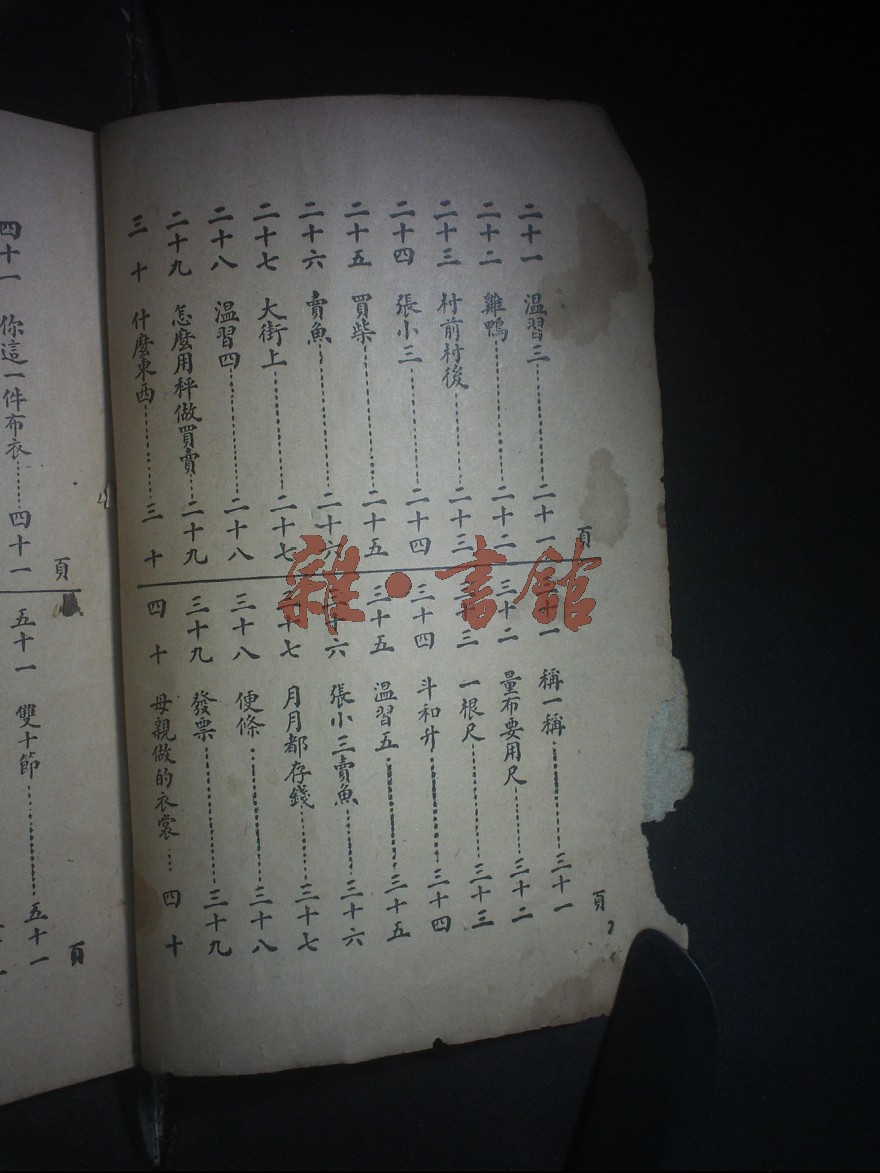 頁
二十一 温習三……二十一
二十二 雞鴨……二十二
二十三 村前村後……二十三
二十四 張小三……二十四
二十五 買柴……二十五
二十六 賣魚……二十六
二十七 大街上……二十七
二十八 温習四……二十八
二十九 怎麼用秤做買賣……二十九
三十 什麼東西……三十
頁
三十一 稱一稱……三十一
三十二 量布要用尺……三十二
三十三 一根尺……三十三
三十四 斗和升……三十四
三十五 温習五……三十五
三十六 張小三賣魚……三十六
三十七 月月都存錢……三十七
三十八 便條……三十八
三十九 發票……三十九
四十 母親做的衣裳……四十
頁
四十一 你這一件布衣……四十一
頁
五十一 雙十節……五十一
雜·書館